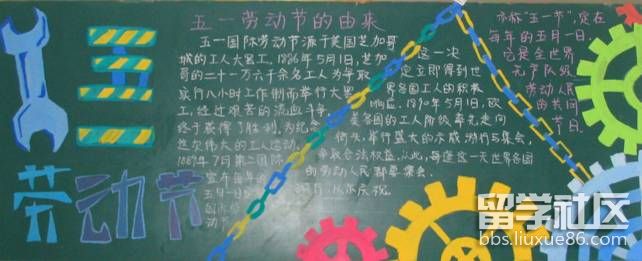 五一
劳动节
五一劳动节的由来
五一国际劳动节源于美国芝加哥
城的工人大罢工，1886年5月1日，芝加
哥的二十一万六千余名工人为争取
实行八小时工作制而举行大罢
工，经过艰苦的流血斗争，
终于获得了胜利，为纪念
这次伟大的工人运动，
1889年7月第二国际
宣布将每年的
五月一日
动节
这一决
定立即得到世
界各国工人的积极
响应，1890年5月1日，欧
美各国的工人阶级率先走向
街头，举行盛大的示威游行与集会，
争取合法权益，从此，每逢这一天世界各国
的劳动人民都要集会、
游行，以示庆祝
亦称"五一节"，定在
每年的五月一日，
它是全世界
无产阶级
劳动人民
的共同
节日
留学社区
bbs.liuxue86.com